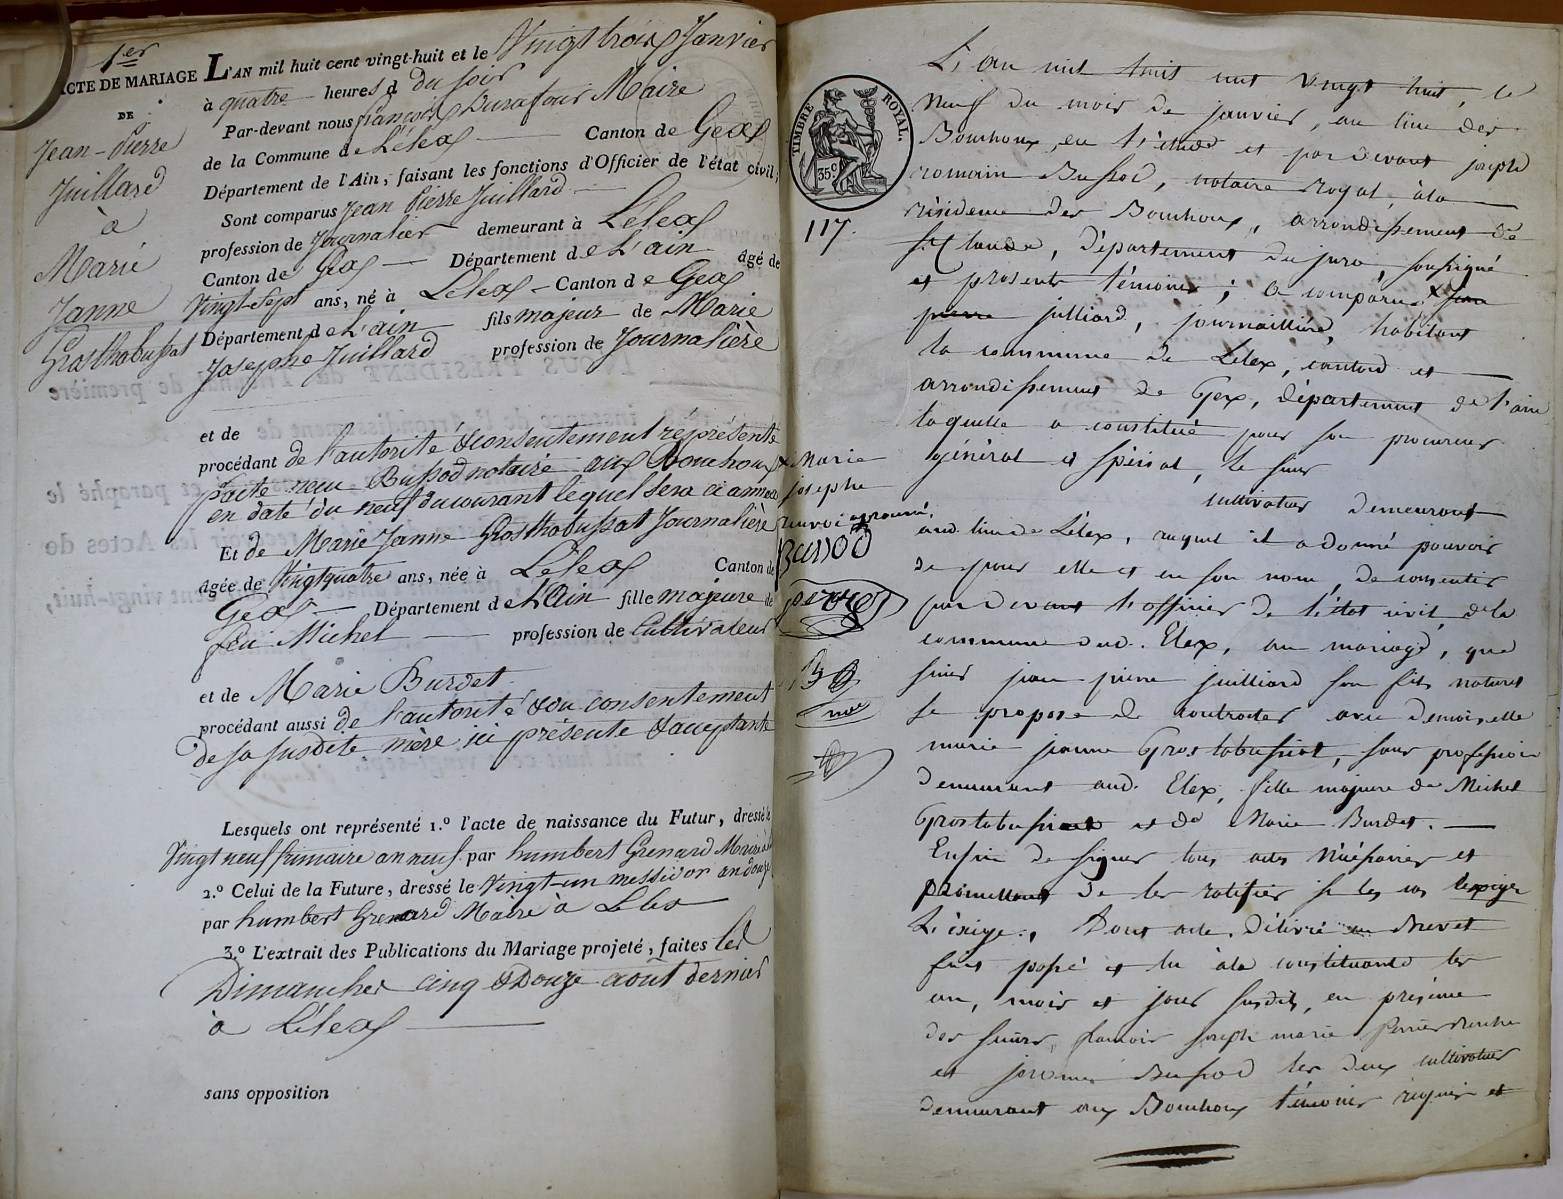 1er
ACTE DE MARIAGE
DE
Jean-Pierre
Juillard
à
Marie
Janne
Grosthabussat
L'AN mil huit cent vingt-huit et le Vingt trois Janvier
à quatre heures d du soir
Par-devant nous françois Durafour Maire
de la Commune de Lélex Canton de Gex
Département de l'Ain, faisant les fonctions d'Officier de l'état civil;
Sont comparus Jean Pierre Juillard
profession de Journalier demeurant à Lélex
Canton de Gex Département de L'ain âgé de
Vingt-sept ans, né à Lélex - Canton de Gex
Département de L'ain fils majeur de Marie
Josephe Juillard profession de Journalière
et de
procédant de l'autorité & consentement réprésenté
p'acte reçu Bussod notaire aux Bouchoux
en date du neuf du courant lequel sera ci annexé
Et de Marie Janne Grosthabussat Journalière
âgée de Vingt quatre ans, née à Lélex Canton de
Gex Département de L'Ain fille majeure de
feu Michel profession de Cultivateur
et de Marie Burdet
procédant aussi de l'autorité & du consentement
de sa susdite mère ici présente & acceptante
Lesquels ont représenté 1.º l'acte de naissance du Futur, dressé le
Vingt neuf frimaire an neuf par humbert Grenard Maire à
2.º Celui de la Future, dressé le Vingt-un messidor an douze
par humbert Grenard Maire à Lélex
3.º L'extrait des Publications du Mariage projeté, faites les
Dimanches cinq & Douze août dernier
à Lélex
sans opposition
TIMBRE ROYAL.
35c
117.
L'an mil huit cent vingt huit, le
neuf du mois de janvier, au lieu des
Bouchoux, en l'étude et par devant joseph
romain Bussod, notaire Royal, à la
résidence des Bouchoux, arrondissement de
St Claude, département du jura, soussigné
et présents témoins; a comparu x
pierre juilliard, journaillière, habitant
la commune de Lélex, canton et
arrondissement de Gex, département de l'ain
laquelle a constitué pour son procureur
général et spécial, le sieur
cultivateur demeurant
aud. lieu de Lélex, auquel il a donné pouvoir
de pour elle et en son nom, de consentir
par devant l'officier de l'état civil de la
commune dud. Elex, au mariage, que
sieur jean pierre juilliard son fils naturel
se propose de contracter avec demoiselle
marie janne Grostabussiat, sans profession
demeurant aud. Elex, fille majeure de Michel
Grostabussiat et de Marie Burdet.
Enfin de signer tous actes nécessaires et
promettant de les ratifier si le cas lexige
L'éxige., Dont acte, délivré en Brevet
fait passé et lu à la constituante les
an, mois et jour susdits, en présence
des sieurs françois joseph marie perrier
et jéromie Bussod les deux cultivateurs
demeurant aux Bouchoux témoins requis et
x Marie
josephe
renvoi approuvé.
Bussod